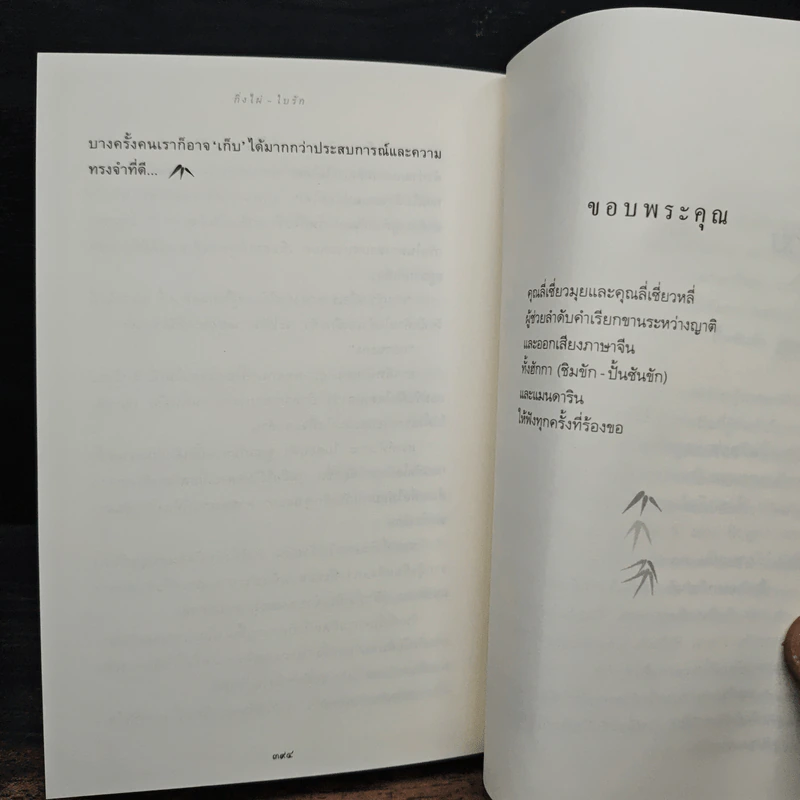 กิ่งไผ่ - ใบรัก
บางครั้งคนเราก็อาจ ‘เก็บ’ ได้มากกว่าประสบการณ์และความ
ทรงจำที่ดี...
๓๙๔
ขอบพระคุณ
คุณลี่เซี่ยวมุยและคุณลี่เซี่ยวหลี่
ผู้ช่วยลำดับคำเรียกขานระหว่างญาติ
และออกเสียงภาษาจีน
ทั้งฮักกา (ชิมขัก - ปั้นซันขัก)
และแมนดาริน
ให้ฟังทุกครั้งที่ร้องขอ